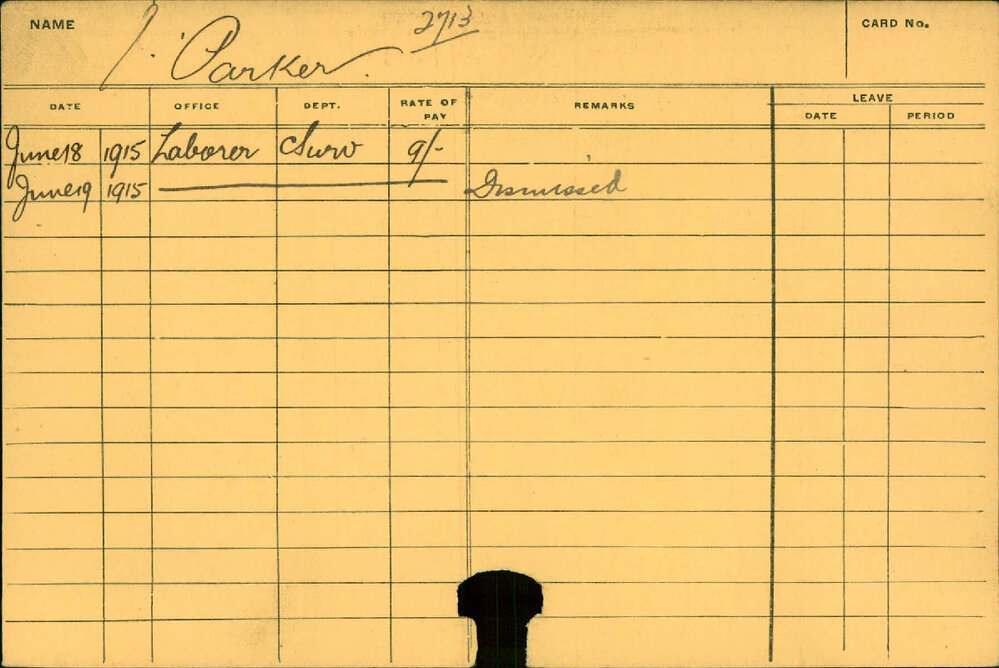 NAME Parker. 2713 CARD No.
DATE OFFICE DEPT. RATE OF PAY REMARKS LEAVE
DATE PERIOD
June 18 1915 Laborer Surv 9/-
June 19 1915 Dismissed